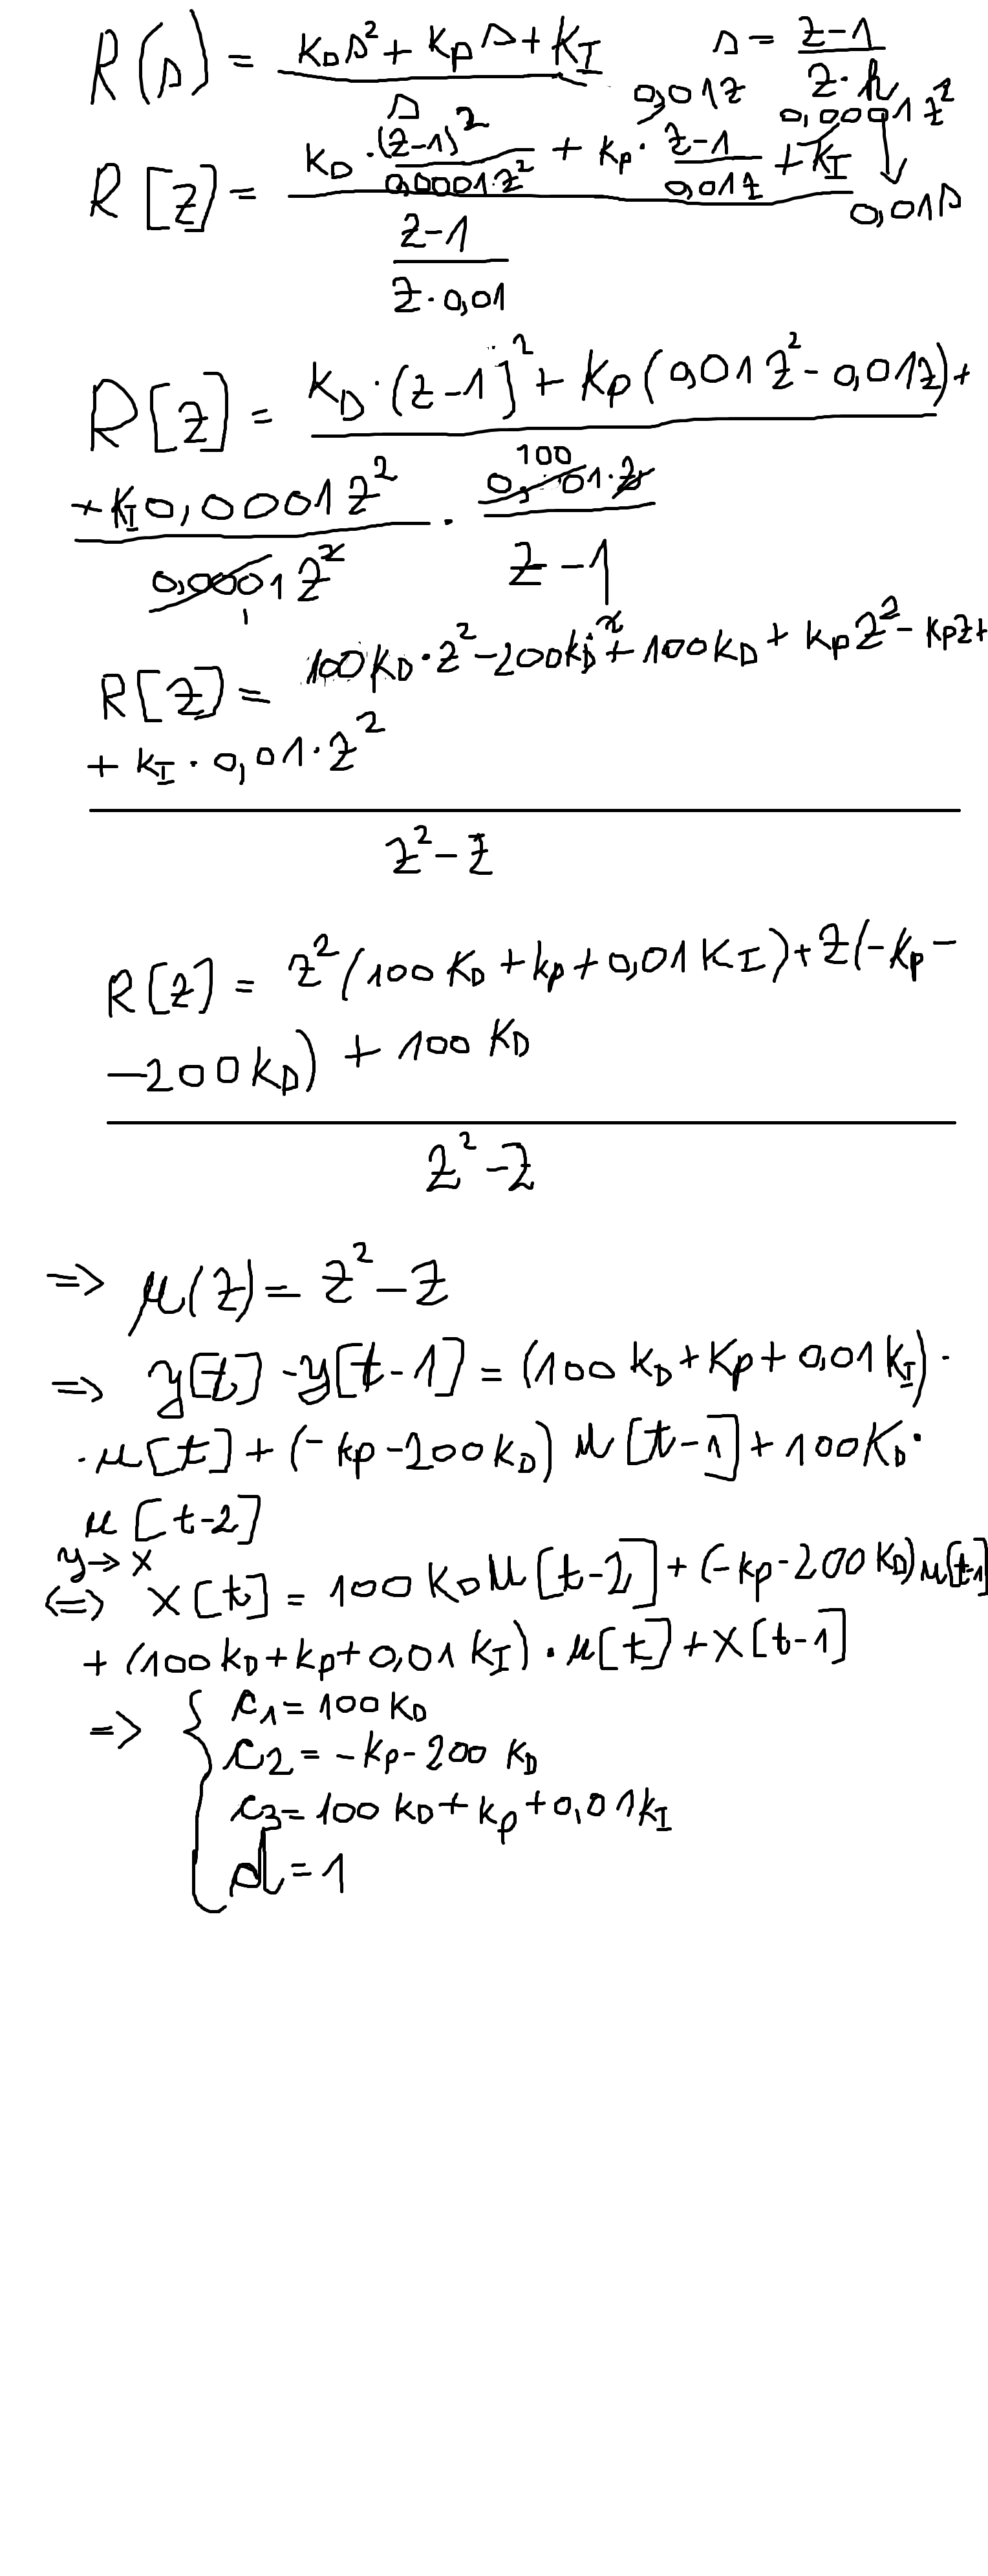 R(s) = (K_D s² + K_P s + K_I) / s    s = (z-1) / (z·h)
0,01z    0,0001z²
R[z] = (K_D · (z-1)² / (0,0001·z²) + K_P · (z-1) / (0,01z) + K_I) / ((z-1) / (z·0,01))    0,01s
R[z] = K_D·(z-1]² + K_P(0,01z² - 0,01z) +
+ K_I 0,0001z² / 0,0001z² · 0,01·z / (z-1)    100
R[z] = 100K_D·z² - 200K_D·z + 100K_D + K_P z² - K_P z +
+ K_I · 0,01·z²
z² - z
R[z] = z²(100K_D + K_P + 0,01K_I) + z(-K_P -
-200K_D) + 100K_D
z² - z
=> μ(z) = z² - z
=> y[t] - y[t-1] = (100K_D + K_P + 0,01K_I) ·
· u[t] + (-K_P - 200K_D) u[t-1] + 100K_D ·
u[t-2]
y → x
<=> x[t] = 100K_D u[t-2] + (-K_P - 200K_D) u[t-1]
+ (100K_D + K_P + 0,01K_I) · u[t] + x[t-1]
=> { c₁ = 100K_D
c₂ = -K_P - 200K_D
c₃ = 100K_D + K_P + 0,01K_I
d = 1